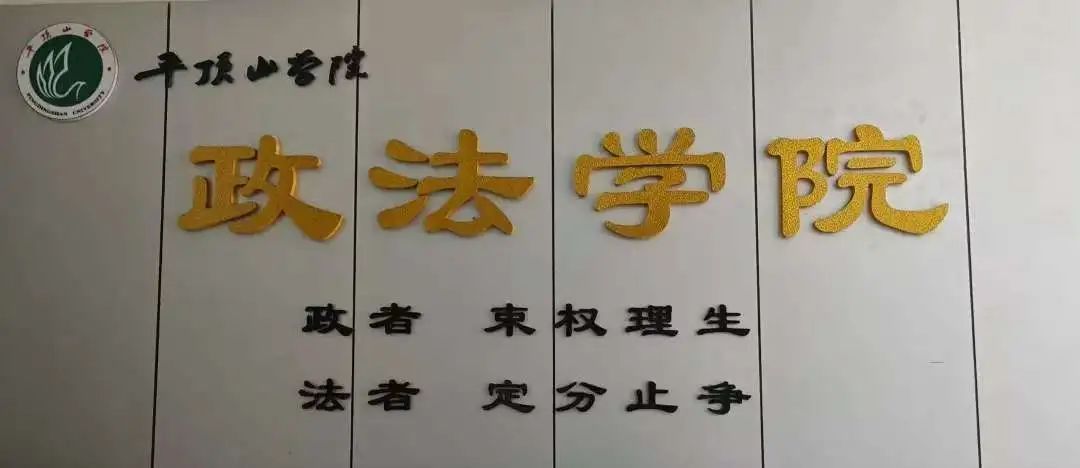 平顶山学院
PINGDINGSHAN UNIVERSITY
平顶山学院
政法学院
政者 束权理生
法者 定分止争